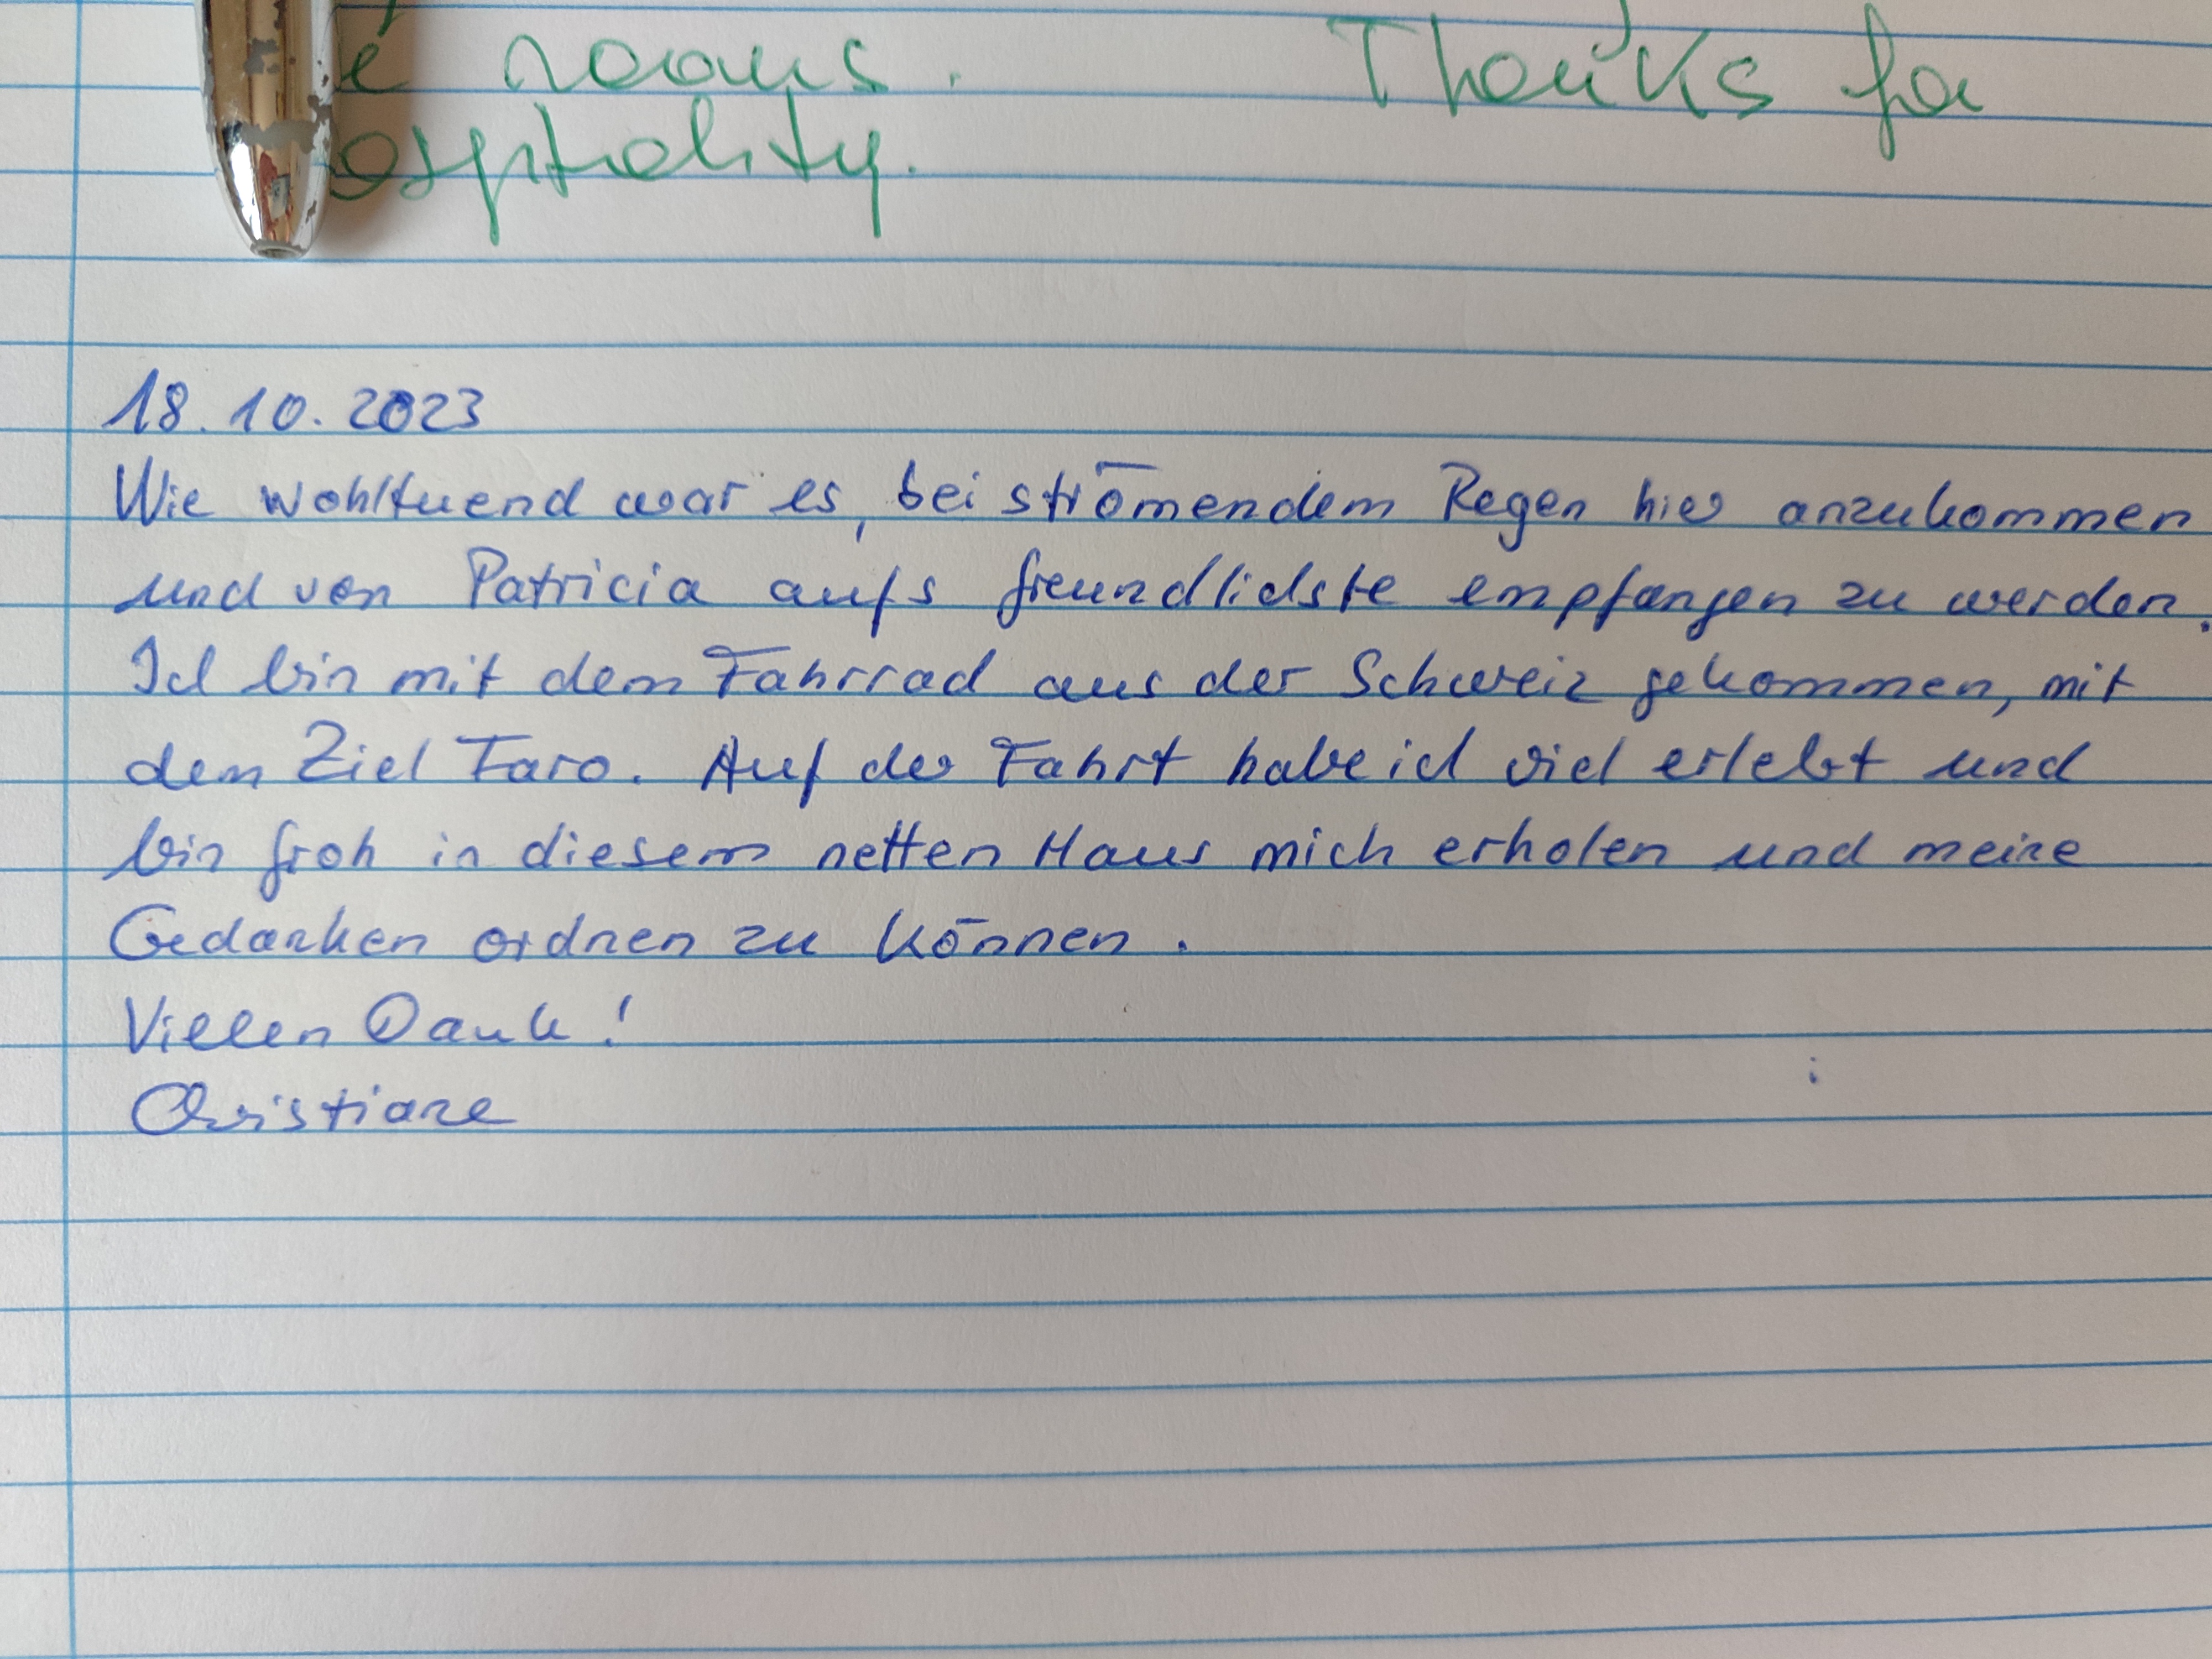 rooms. Thanks for
hospitality.
18.10.2023
Wie wohltuend war es, bei strömendem Regen hier anzukommen
und von Patricia aufs freundlichste empfangen zu werden.
Ich bin mit dem Fahrrad aus der Schweiz gekommen, mit
dem Ziel Faro. Auf der Fahrt habe ich viel erlebt und
bin froh in diesem netten Haus mich erholen und meine
Gedanken ordnen zu können.
Viellen Dank!
Christiane